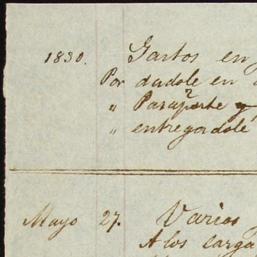 1830. Gastos en
Por dadole en
" Parag.te y
" entregadole
Mayo 27. Varios
A los carga